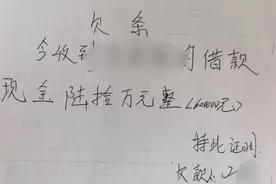 欠条
今收到 的借款
现金陆拾万元整(600000元)
特此证明
欠款人